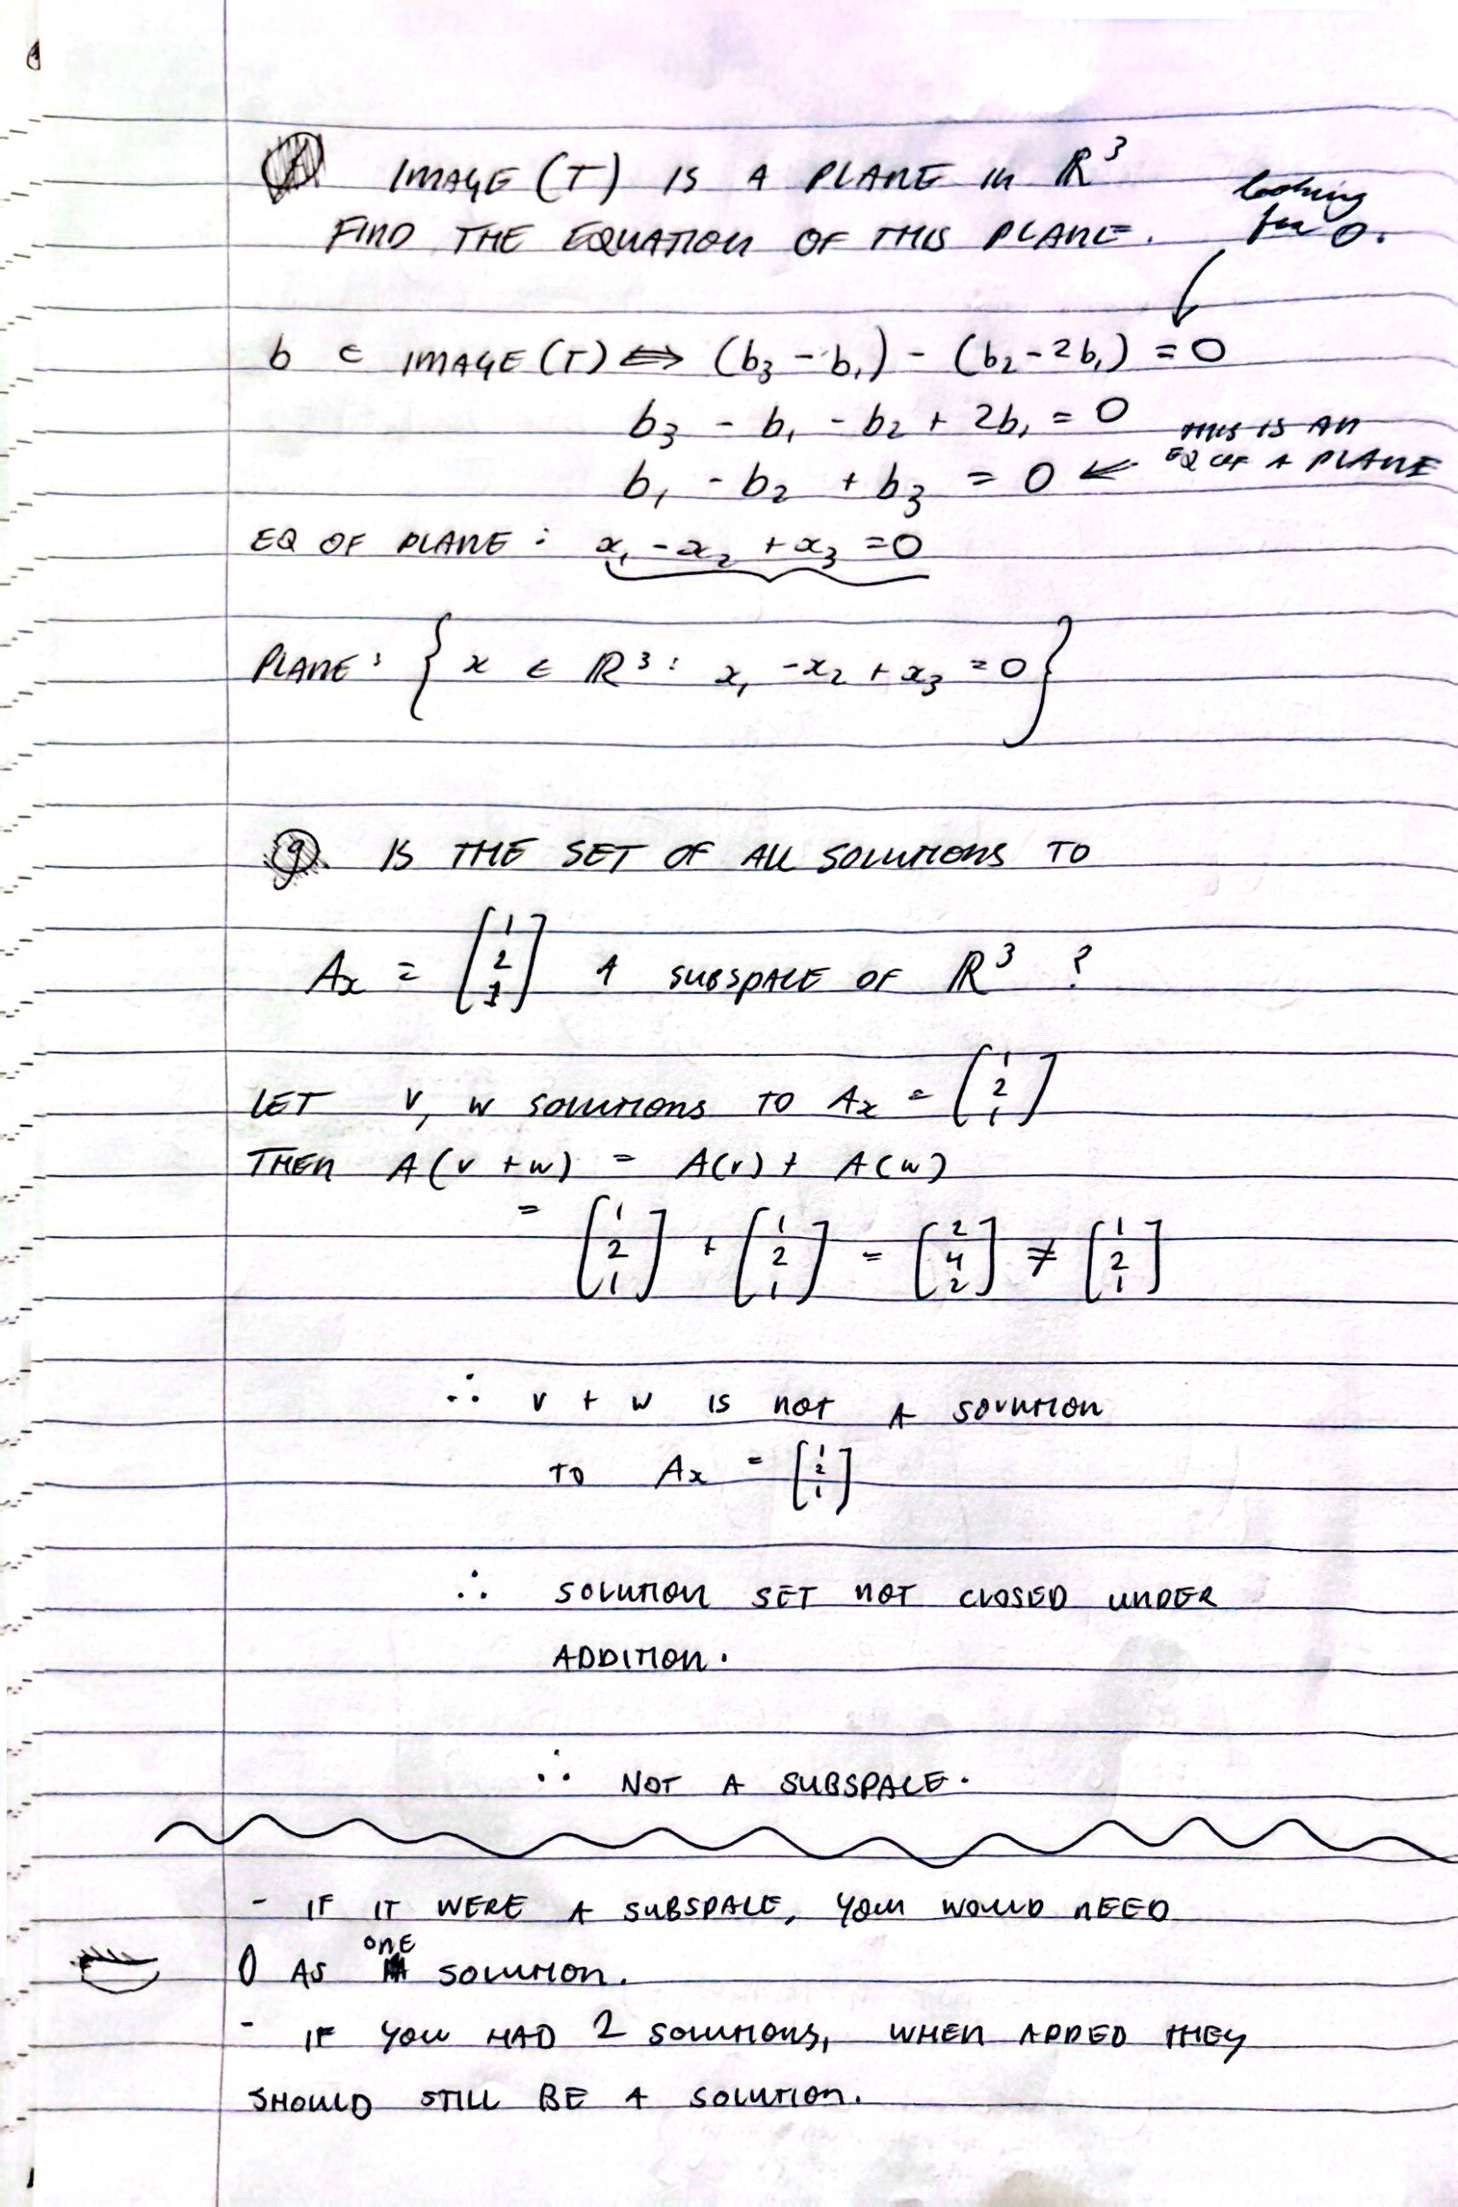 (f) IMAGE (T) IS A PLANE IN ℝ³
FIND THE EQUATION OF THIS PLANE.
looking
for 0.
b ∈ IMAGE (T) ⟺ (b₃ - b₁) - (b₂ - 2b₁) = 0
b₃ - b₁ - b₂ + 2b₁ = 0
b₁ - b₂ + b₃ = 0 ←
THIS IS AN
EQ OF A PLANE
EQ OF PLANE : x₁ - x₂ + x₃ = 0
PLANE : { x ∈ ℝ³ : x₁ - x₂ + x₃ = 0 }
(g) IS THE SET OF ALL SOLUTIONS TO
Ax = [1 2 1] A SUBSPACE OF ℝ³ ?
LET v, w SOLUTIONS TO Ax = [1 2 1]
THEN A(v + w) = A(v) + A(w)
= [1 2 1] + [1 2 1] = [2 4 2] ≠ [1 2 1]
∴ v + w IS NOT A SOLUTION
TO Ax = [1 2 1]
∴ SOLUTION SET NOT CLOSED UNDER
ADDITION.
∴ NOT A SUBSPACE.
- IF IT WERE A SUBSPACE, YOU WOULD NEED
0 AS ONE SOLUTION.
- IF YOU HAD 2 SOLUTIONS, WHEN ADDED THEY
SHOULD STILL BE A SOLUTION.